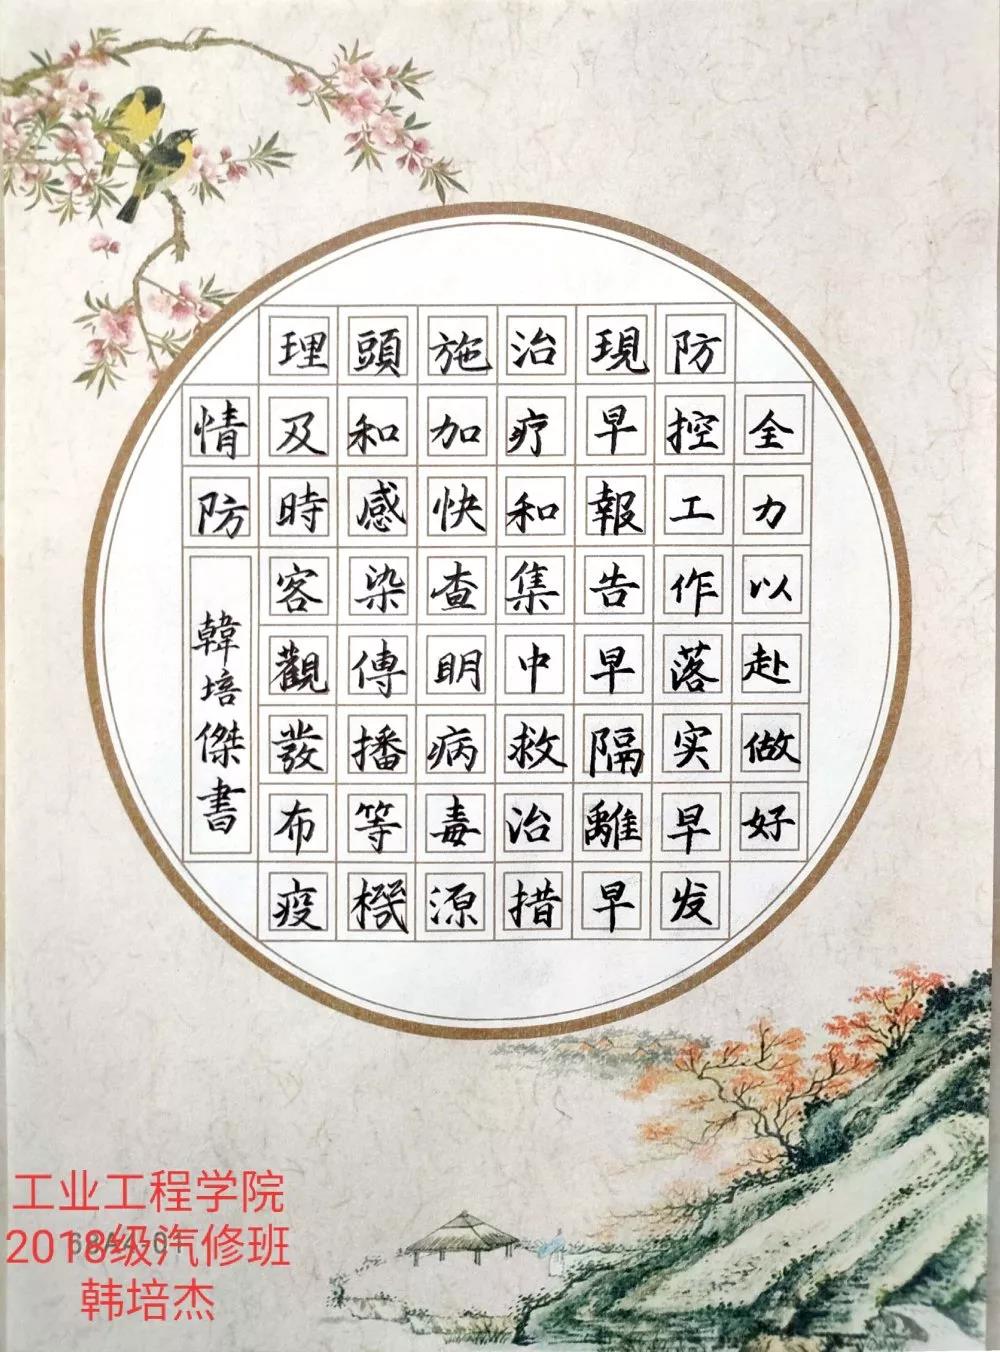 全力以赴做好
防控工作落实早发
現早報告早隔離早
治疗和集中救治措
施加快查明病毒源
頭和感染傳播等機
理及時客觀發布疫
情防
韓培傑書
工业工程学院
2018级汽修班
韩培杰